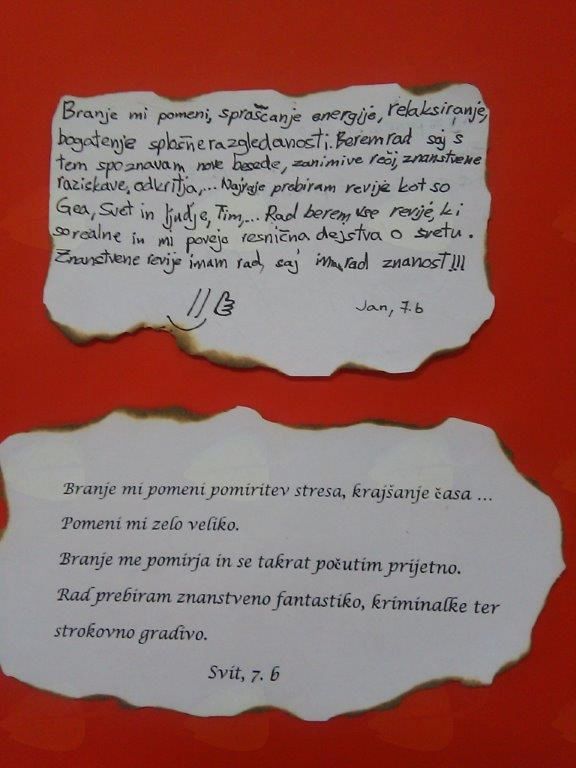 Branje mi pomeni, spraščanje energije, relaksiranje,
bogatenje splošne razgledanosti. Berem rad saj s
tem spoznavam nove besede, zanimive reči, znanstvene
raziskave, odkritja,... Najraje prebiram revije kot so
Gea, Svet in ljudje, Tim,... Rad berem vse revije, ki
so realne in mi povejo resnična dejstva o svetu.
Znanstvene revije imam rad, saj imam rad znanost!!!
Jan, 7.b
Branje mi pomeni pomiritev stresa, krajšanje časa ...
Pomeni mi zelo veliko.
Branje me pomirja in se takrat počutim prijetno.
Rad prebiram znanstveno fantastiko, kriminalke ter
strokovno gradivo.
Svit, 7. b